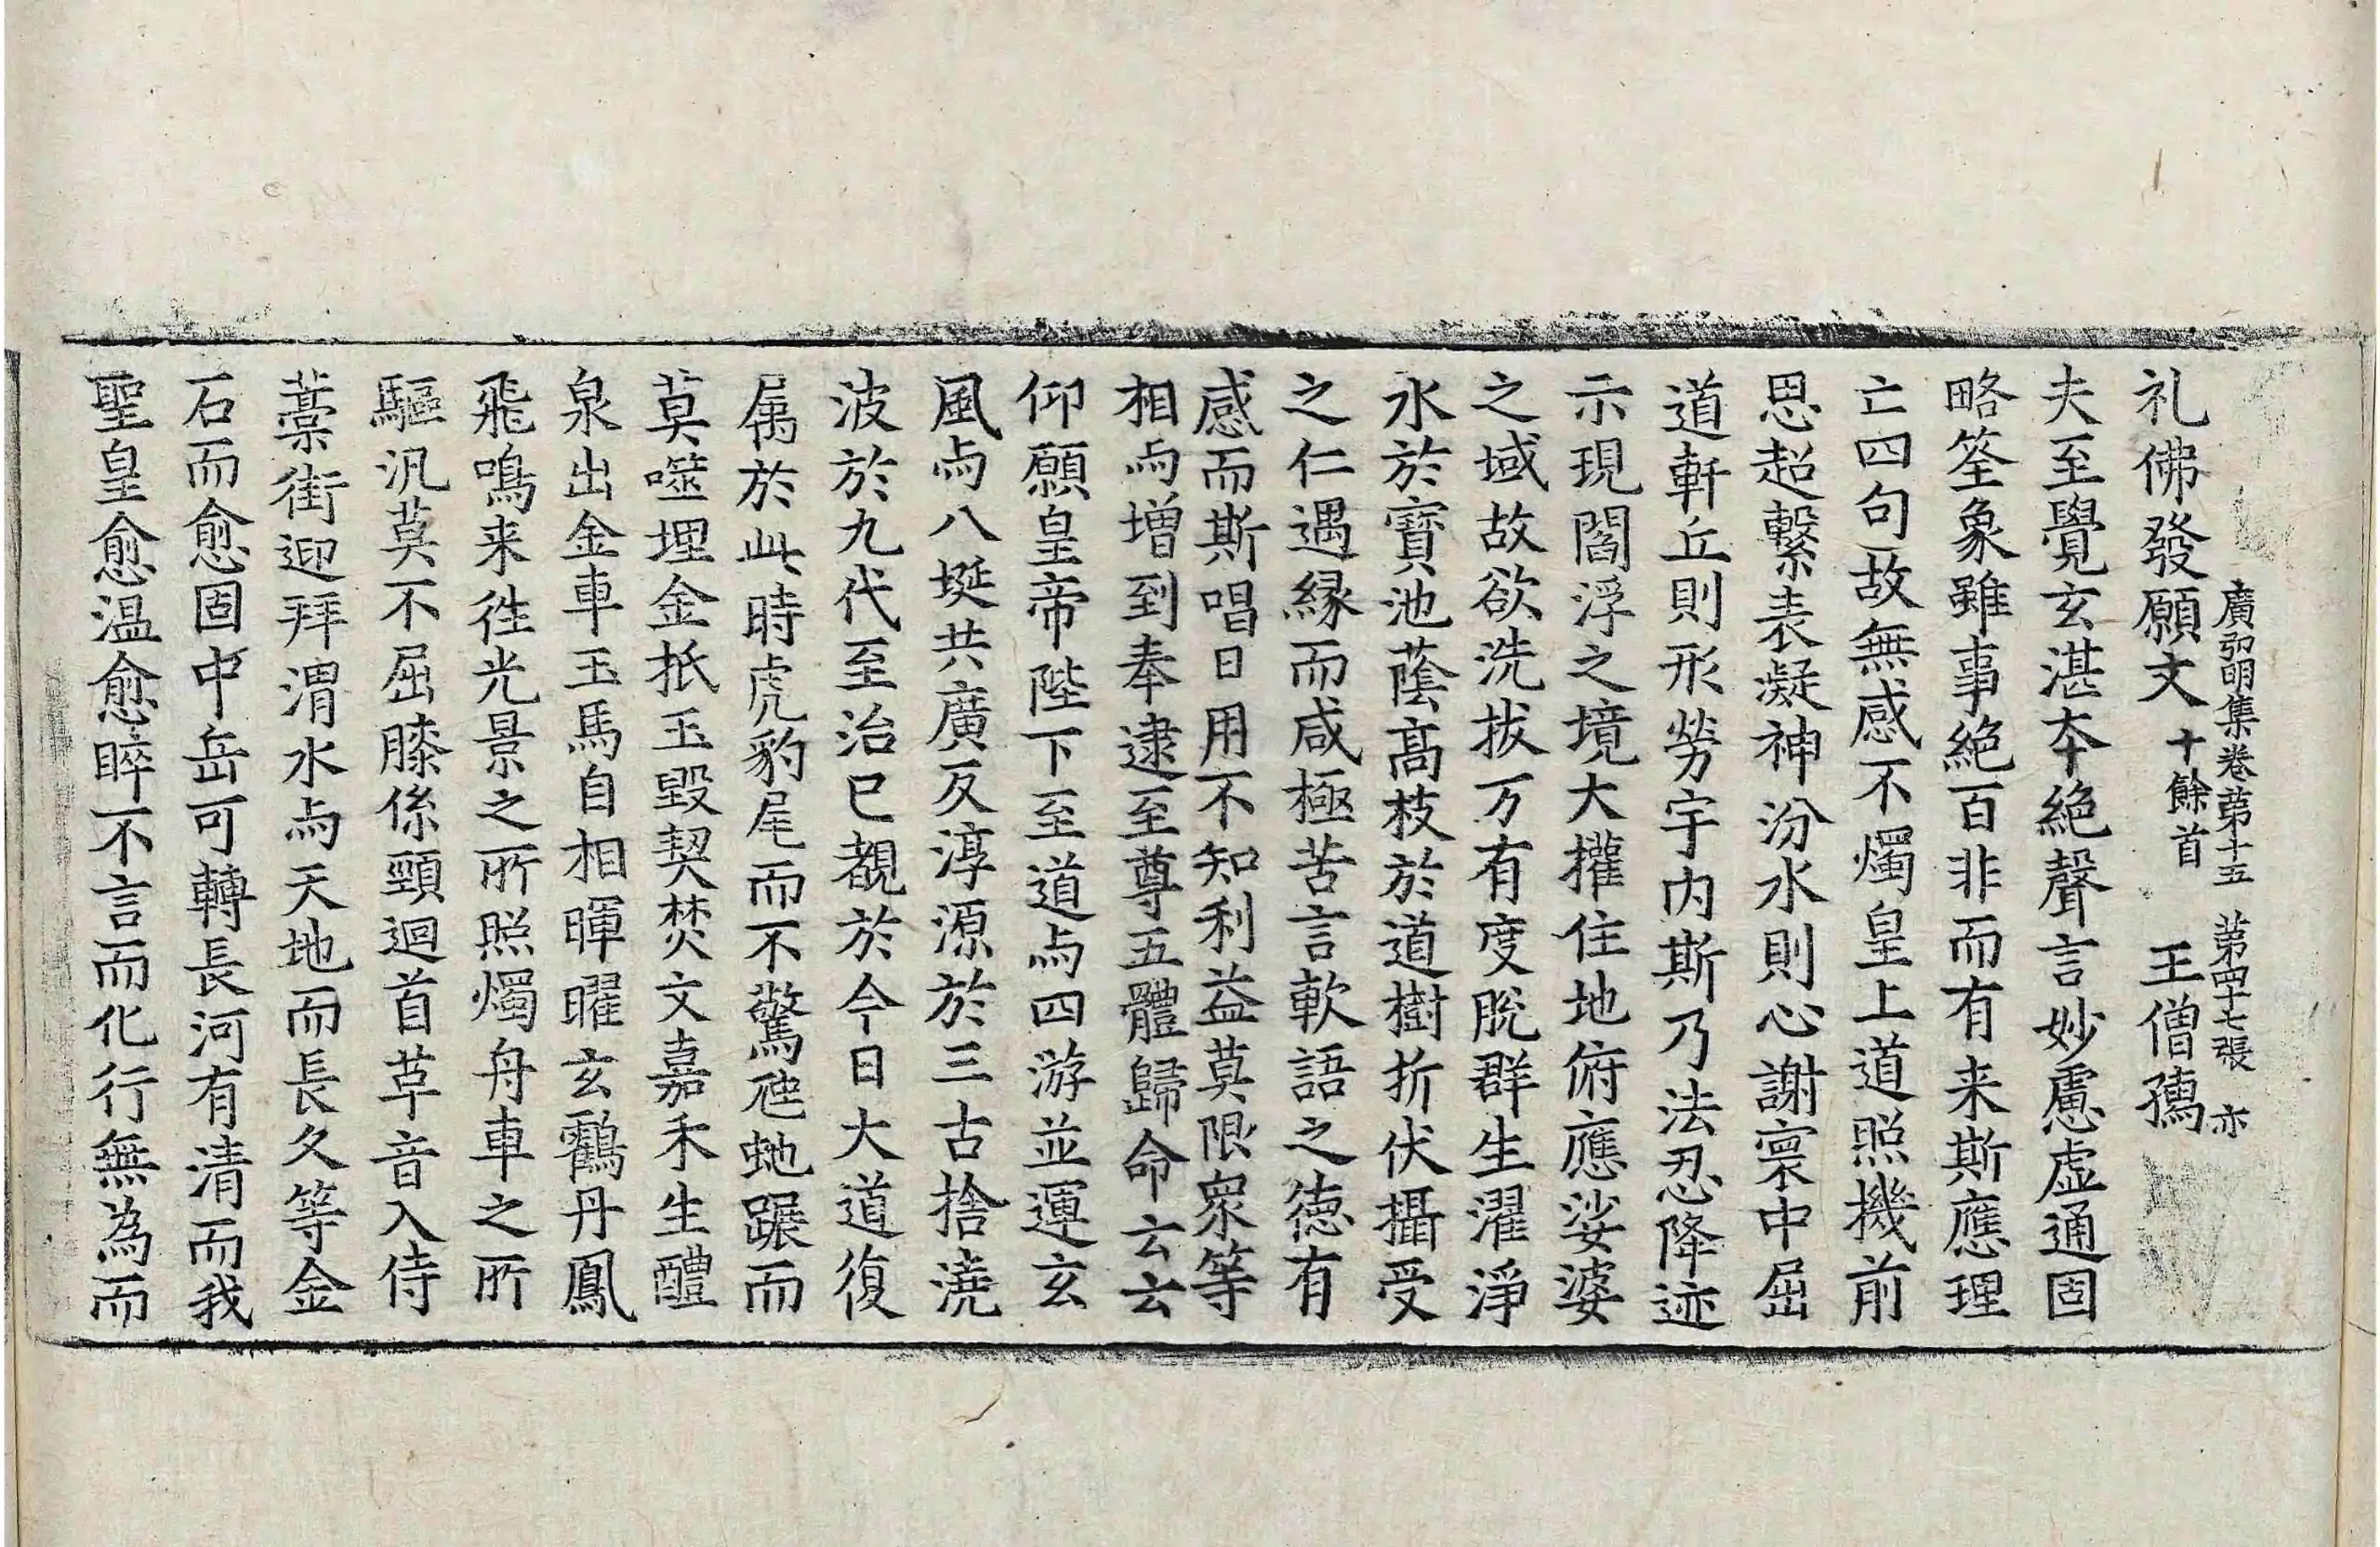 廣弘明集卷苐十五 苐四十七張 亦
礼佛發願文 十餘首 王僧孺
夫至覺玄湛本絶聲言妙慮虚通固
略筌象雖事絶百非而有来斯應理
亡四句故無感不燭皇上道照機前
思超繫表凝神汾水則心謝寰中屈
道軒丘則形勞宇内斯乃法忍降迹
示現閻浮之境大權住地俯應娑婆
之域故欲洗拔万有度脱群生濯淨
水於寶池蔭髙枝於道樹折伏攝受
之仁遇縁而咸極苦言軟語之德有
感而斯唱日用不知利益莫限衆等
相与增到奉逮至尊五體歸命云云
仰願皇帝陛下至道与四游並運玄
風与八埏共廣反淳源於三古捨澆
波於九代至治已覩於今日大道復
属於此時虎豹尾而不驚虺虵蹍而
莫噬埋金扺玉毀契焚文嘉禾生醴
泉出金車玉馬自相暉曜玄鸖丹鳳
飛鳴来徃光景之所照燭舟車之所
驅汎莫不屈膝係頸迴首革音入侍
藁街迎拜渭水与天地而長久等金
石而愈固中岳可轉長河有清而我
聖皇愈温愈睟不言而化行無為而